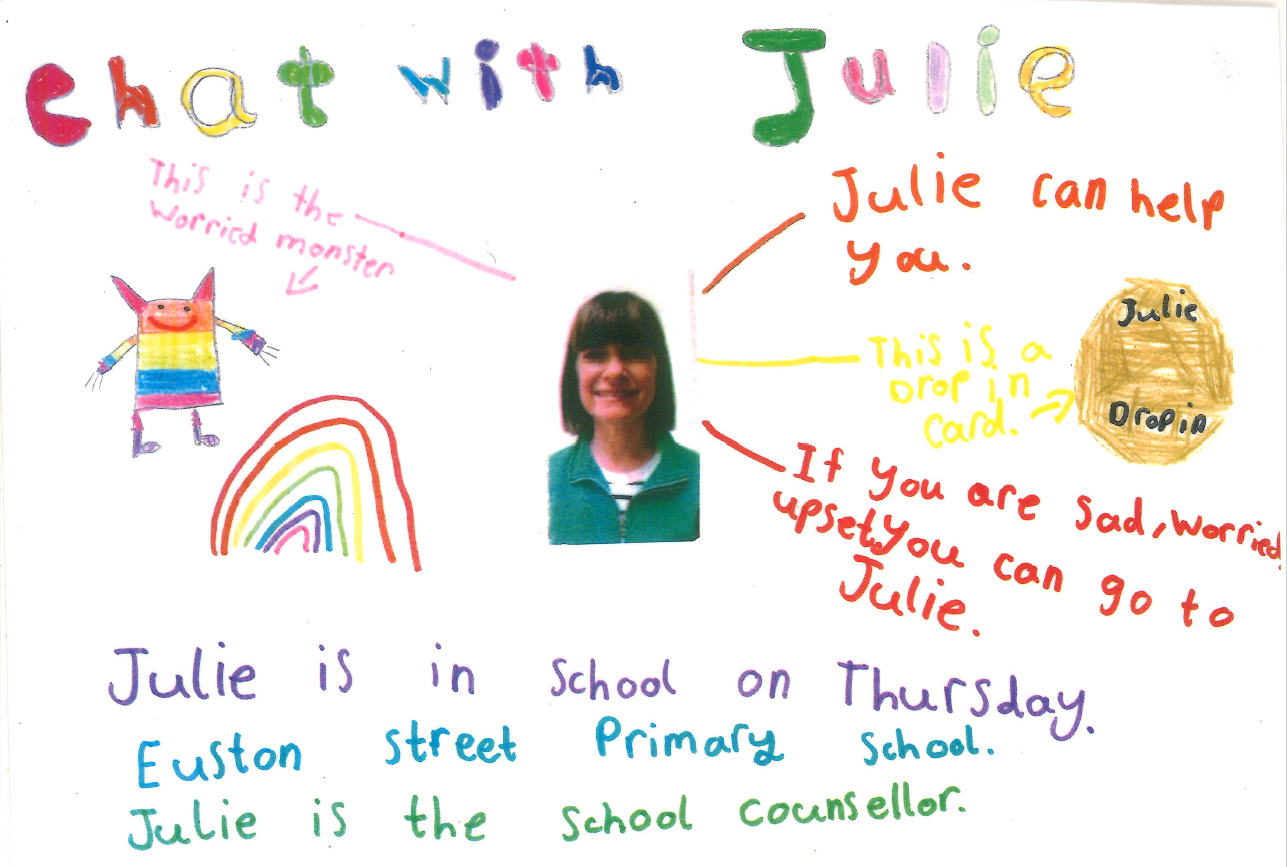 Chat with Julie
This is the
worried monster
Julie can help
you.
This is a
Drop in
card.
Julie
Drop in
If you are sad, worried,
upset, you can go to
Julie.
Julie is in school on Thursday.
Euston street Primary school.
Julie is the school counsellor.